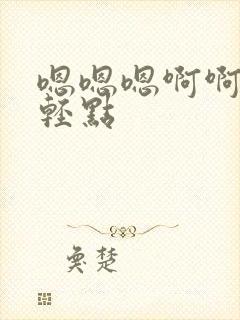 嗯嗯嗯啊啊
輕點
奚楚